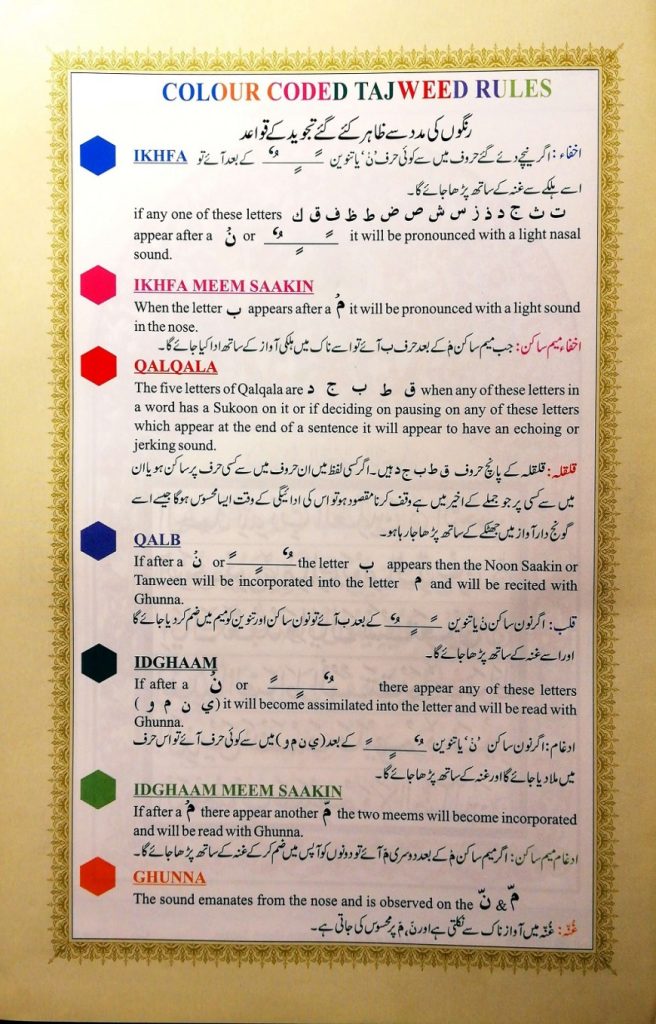 COLOUR CODED TAJWEED RULES
رنگوں کی مدد سے ظاہر کئے گئے تجوید کے قواعد
IKHFA اخفاء: اگر نیچے دئے گئے حروف میں سے کوئی حرف 'نْ' یا تنوین ــًــٍــٌ کے بعد آئے تو
اسے ہلکے سے غنہ کے ساتھ پڑھا جائے گا۔
if any one of these letters ت ث ج د ذ ز س ش ص ض ط ظ ف ق ك
appear after a نْ or ــًــٍــٌ it will be pronounced with a light nasal
sound.
IKHFA MEEM SAAKIN
When the letter ب appears after a مْ it will be pronounced with a light sound
in the nose.
اخفاء میم ساکن: جب میم ساکن مْ کے بعد حرف ب آئے تو اسے ناک میں ہلکی آواز کے ساتھ ادا کیا جائے گا۔
QALQALA
The five letters of Qalqala are ق ط ب ج د when any of these letters in
a word has a Sukoon on it or if deciding on pausing on any of these letters
which appear at the end of a sentence it will appear to have an echoing or
jerking sound.
قلقلہ: قلقلہ کے پانچ حروف ق ط ب ج د ہیں۔ اگر کسی لفظ میں ان حروف میں سے کسی حرف پر ساکن ہو یا ان
میں سے کسی پر جو جملے کے اخیر میں ہے وقف کرنا مقصود ہو تو اس کی ادائیگی کے وقت ایسا محسوس ہوگا جیسے اسے
گونج دار آواز میں جھٹکے کے ساتھ پڑھا جا رہا ہو۔
QALB
If after a نْ or ــًــٍــٌ the letter ب appears then the Noon Saakin or
Tanween will be incorporated into the letter م and will be recited with
Ghunna.
قلب: اگر نون ساکن نْ یا تنوین ــًــٍــٌ کے بعد ب آئے تو نون ساکن اور تنوین کو میم میں ضم کر دیا جائے گا
اور اسے غنہ کے ساتھ پڑھا جائے گا۔
IDGHAAM
If after a نْ or ــًــٍــٌ there appear any of these letters
(ي ن م و) it will become assimilated into the letter and will be read with
Ghunna.
ادغام: اگر نون ساکن 'نْ' یا تنوین ــًــٍــٌ کے بعد (ی ن م و) میں سے کوئی حرف آئے تو اس حرف
میں ملا دیا جائے گا اور غنہ کے ساتھ پڑھا جائے گا۔
IDGHAAM MEEM SAAKIN
If after a مْ there appear another مّ the two meems will become incorporated
and will be read with Ghunna.
ادغام میم ساکن: اگر میم ساکن مْ کے بعد دوسری مْ آئے تو دونوں کو آپس میں ضم کر کے غنہ کے ساتھ پڑھا جائے گا۔
GHUNNA
The sound emanates from the nose and is observed on the نّ & مّ
غُنّہ: غُنّہ میں آواز ناک سے نکلتی ہے اور نّ، مّ پر محسوس کی جاتی ہے۔